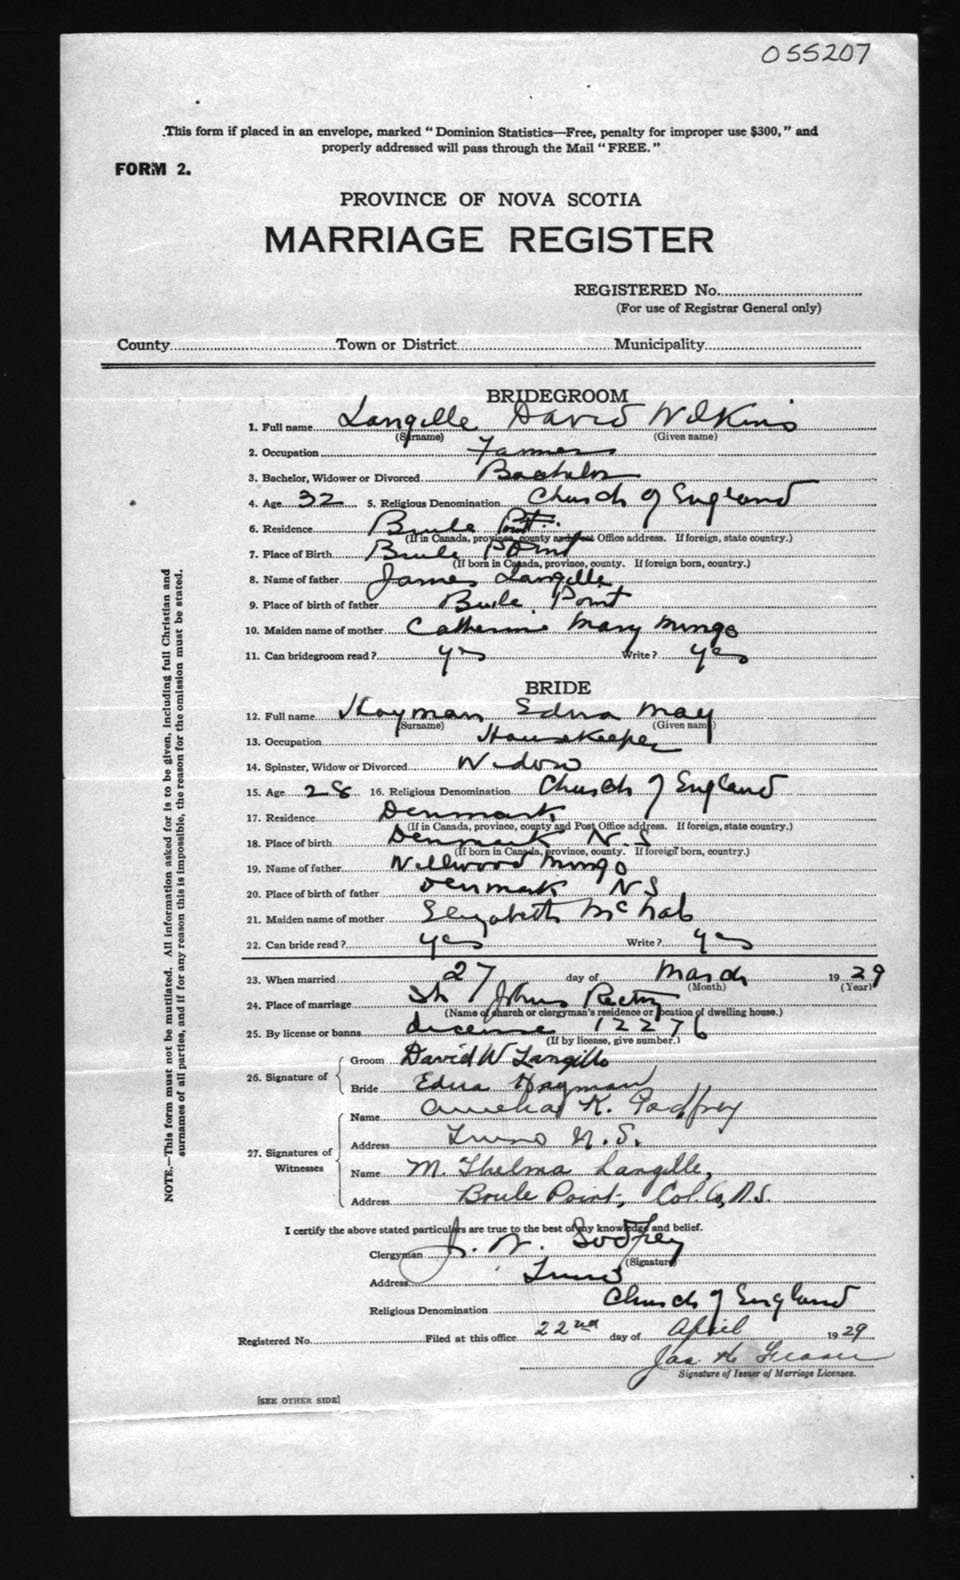 055207
This form if placed in an envelope, marked "Dominion Statistics—Free, penalty for improper use $300," and
properly addressed will pass through the Mail "FREE."
FORM 2.
PROVINCE OF NOVA SCOTIA
MARRIAGE REGISTER
REGISTERED No.
(For use of Registrar General only)
County Town or District Municipality
BRIDEGROOM
1. Full name Langille David Wilkins
(Surname) (Given name)
2. Occupation Farmer
3. Bachelor, Widower or Divorced Bachelor
4. Age 32 5. Religious Denomination Church of England
6. Residence Brule Point
(If in Canada, province, county and Post Office address. If foreign, state country.)
7. Place of Birth Brule Point
(If born in Canada, province, county. If foreign born, country.)
8. Name of father James Langille
9. Place of birth of father Brule Point
10. Maiden name of mother Catherine Mary Mingo
11. Can bridegroom read? yes Write? yes
BRIDE
12. Full name Hayman Edna May
(Surname) (Given name)
13. Occupation Housekeeper
14. Spinster, Widow or Divorced Widow
15. Age 28 16. Religious Denomination Church of England
17. Residence Denmark
(If in Canada, province, county and Post Office address. If foreign, state country.)
18. Place of birth Denmark N.S
(If born in Canada, province, county. If foreign born, country.)
19. Name of father Wellwood Mingo
20. Place of birth of father Denmark N S
21. Maiden name of mother Elizabeth McNab
22. Can bride read? yes Write? yes
23. When married 27 day of March 1929
(Month) (Year)
24. Place of marriage St Johns Rectory
(Name of church or clergyman's residence or location of dwelling house.)
25. By license or banns license 12276
(If by license, give number.)
26. Signature of Groom David W Langille
Bride Edna Hayman
27. Signatures of Witnesses Name Amelia K. Godfrey
Address Truro N.S.
Name M. Thelma Langille,
Address Brule Point, Col. Co, N.S.
I certify the above stated particulars are true to the best of my knowledge and belief.
Clergyman J. W. Godfrey
(Signature)
Address Truro
Religious Denomination Church of England
Registered No. Filed at this office 22nd day of April 1929
Jas K Fraser
Signature of Issuer of Marriage Licenses.
[SEE OTHER SIDE]
NOTE.—This form must not be mutilated. All information asked for is to be given, including full Christian and
surnames of all parties, and if for any reason this is impossible, the reason for the omission must be stated.